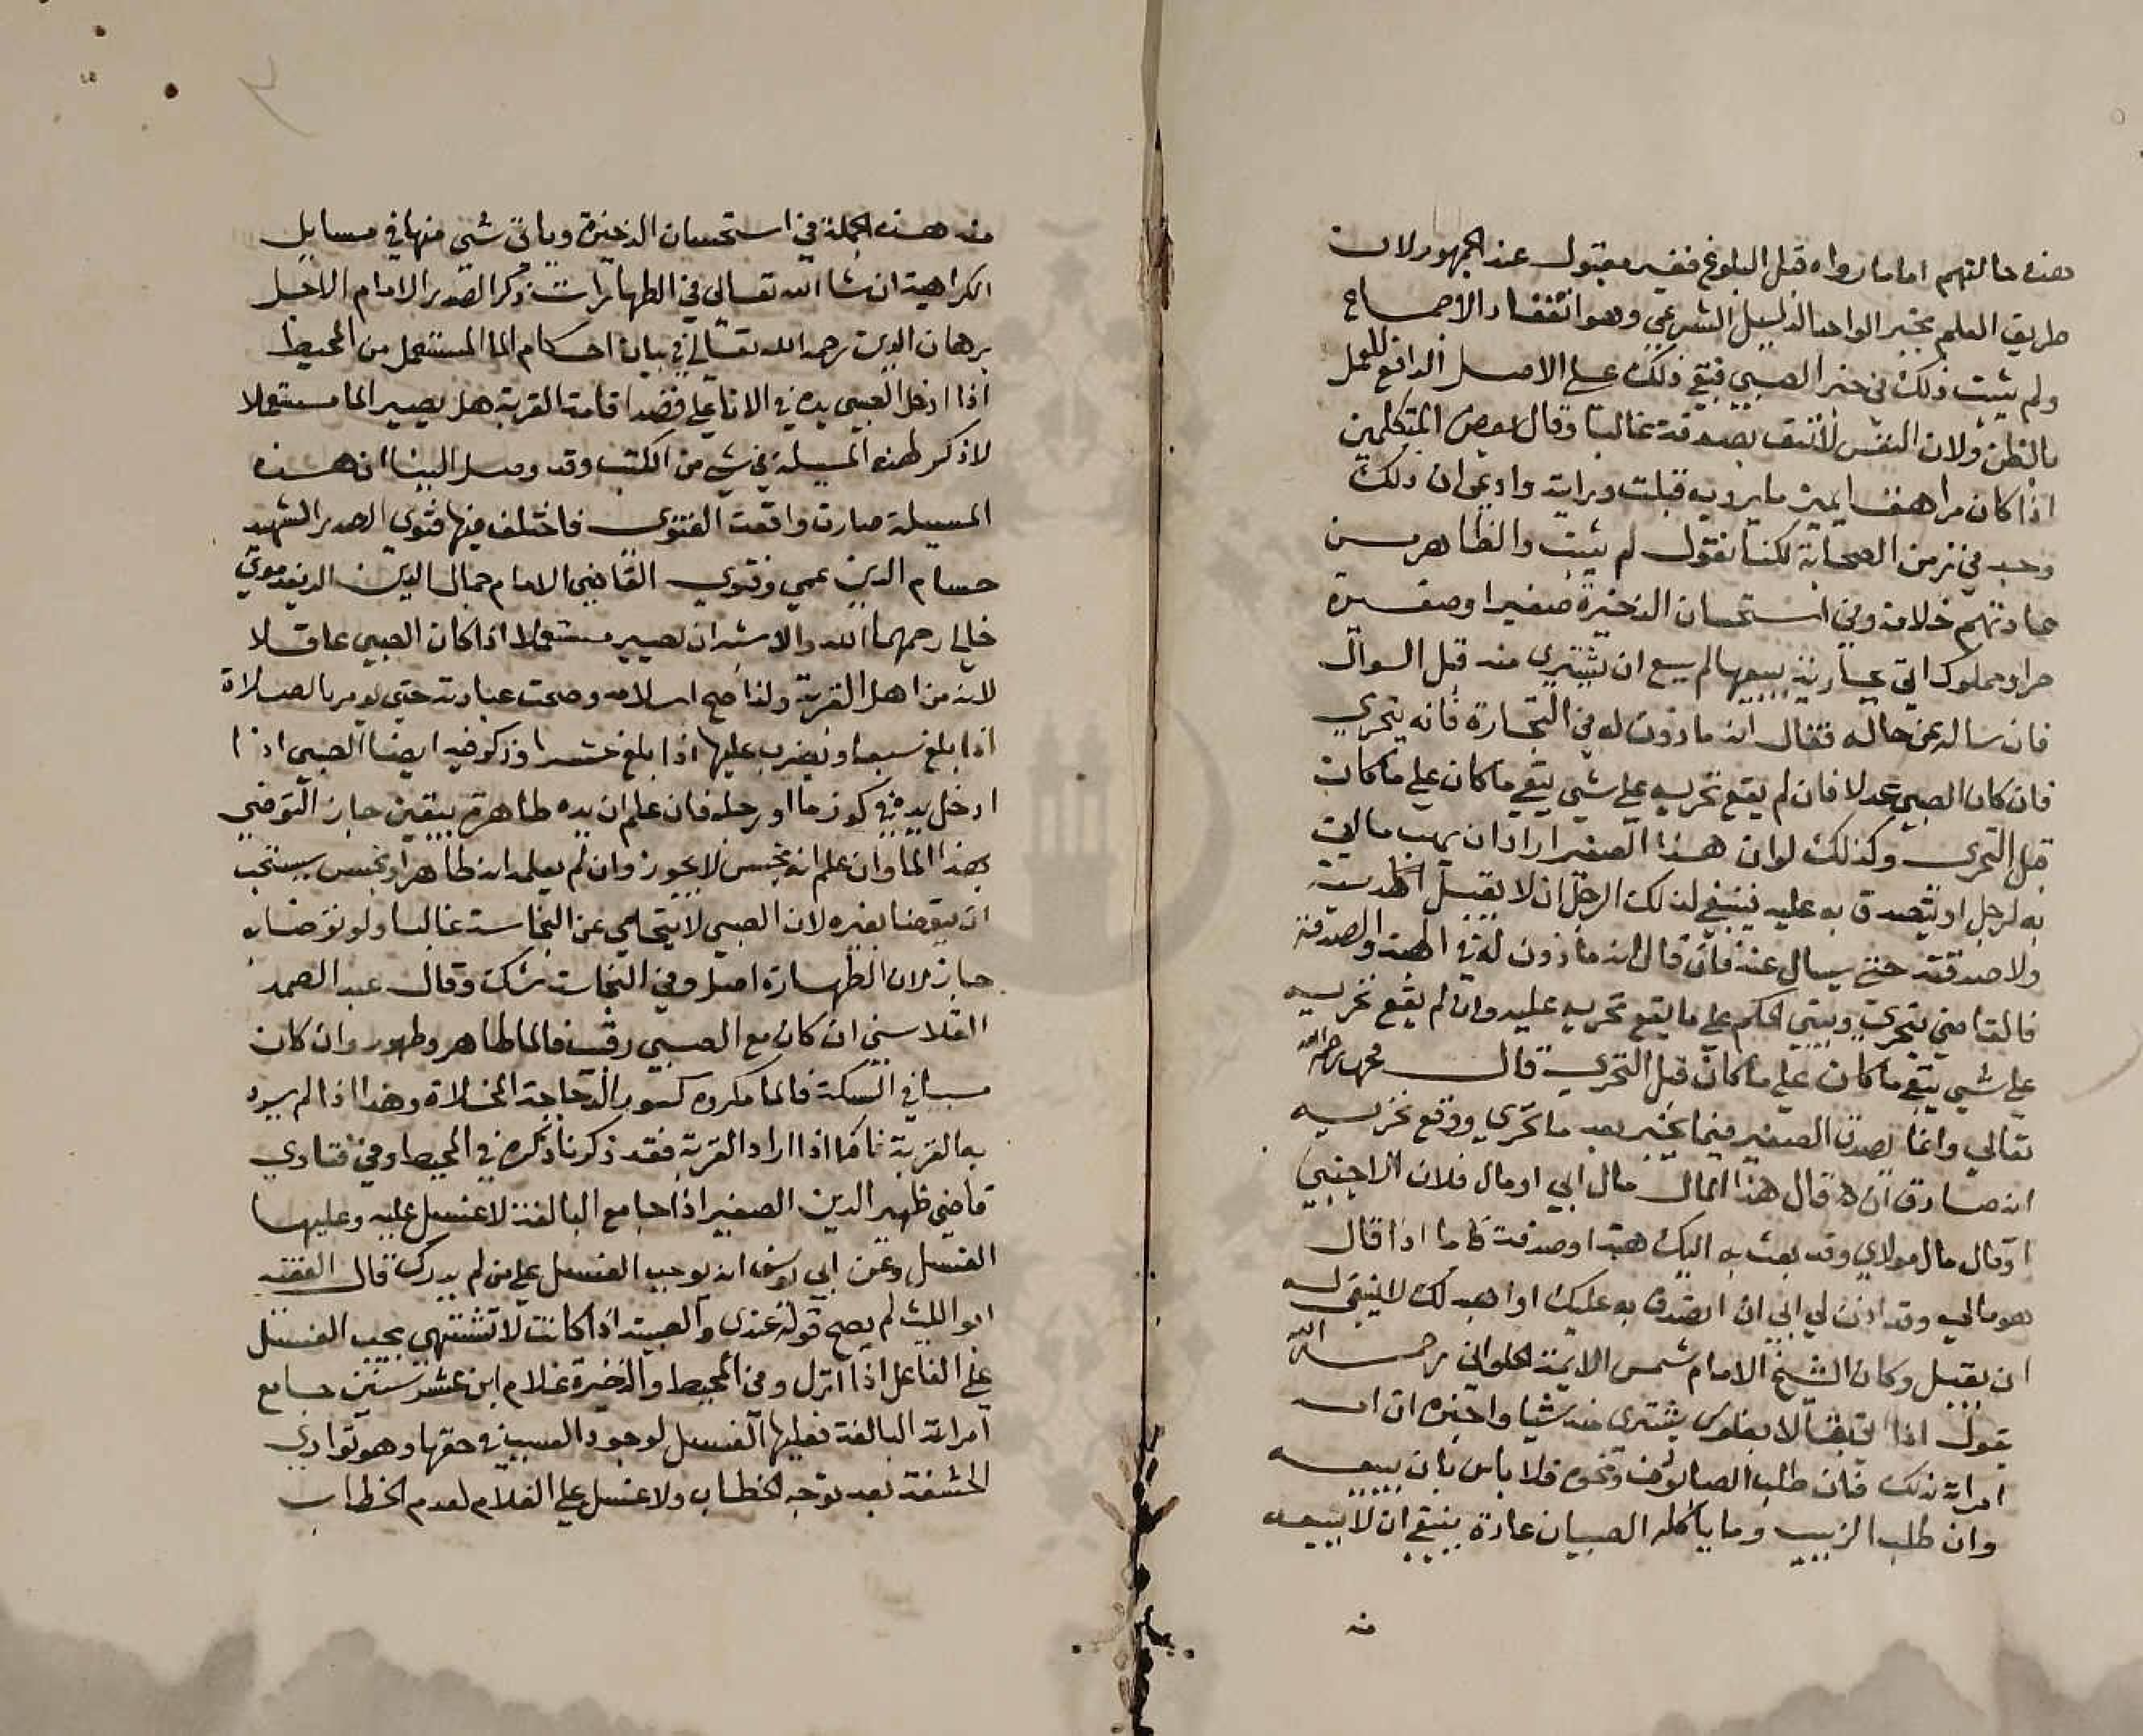 هذه حالتهم اما ما رواه قبل البلوغ فغير مقبول عند الجمهور لان
طريق العلم بخبر الواحد الدليل الشرعي وهو انعقاد الاجماع
ولم يثبت ذلك في خبر الصبي فبقي ذلك على الاصل الدافع للعمل
بالظن ولان النفس لا تثق بصدقه غالبا وقال بعض المتكلمين
اذا كان مراهقا يميز ما يرويه قبلت روايته وادعى ان ذلك
وجد في زمن الصحابة لكنا نقول لم يثبت والظاهر من
عادتهم خلافه وفي استحسان الذخيرة صغير او صغيرة
حر او مملوك اتى بجارية يبيعها لم يسع ان يشتري منه قبل السوال
فان ساله عن حاله فقال انه ماذون له في التجارة فانه يتحري
فان كان الصبي عدلا فان لم يقع تحريه على شي يبقي ما كان على ما كان
قبل التحري وكذلك لو ان هذا الصغير اراد ان يهب ما اتى
به لرجل او يتصدق به عليه فينبغي لذلك الرجل ان لا يقبل الهدية
ولا صدقته حتى يسال عنه فان قال انه ماذون له في الهبة والصدقة
فالقاضي يتحري ويبني الحكم على ما يقع تحريه عليه وان لم يقع تحريه
على شي يبقي ما كان على ما كان قبل التحري قال محمد رحمه الله
تعالى وانما يصدق الصغير فيما يخبر بعد ما تحري ووقع تحريه
انه صادق ان لو قال هذا المال مال ابي او مال فلان الاجنبي
او قال مال مولاي وقد بعث به اليك هبة او صدقة فاما اذا قال
هو مالي وقد اذن لي ابي ان اتصدق به عليك او اهبه لك لا ينبغي له
ان يقبل وكان الشيخ الامام شمس الايمة الحلواني رحمه الله
يقول اذا اتى بقالا بفلوس يشتري منه شيا واخبره ان
امرته بذلك فان طلب الصابون ونحوه فلا باس بان يبيعه
وان طلب الزبيب وما ياكله الصبيان عادة ينبغي ان لا يبيعه
منه
منه هذه الجملة في استحسان الذخيرة وياتي شي منها في مسايل
الكراهية ان شا الله تعالى في الطهارات ذكر الصدر الامام الاجل
برهان الدين رحمه الله تعالى في بيان احكام الما المستعمل من المحيط
اذا ادخل الصبي يده في الانا على قصد اقامة القربة هل يصير الما مستعملا
لا ذكر لهذه المسيلة في شي من الكتب وقد وصل الينا ان هذه
المسيلة صارت واقعت الفتوى فاختلف فيها فتوى الصدر الشهيد
حسام الدين عمي وفتوي القاضي الامام جمال الدين الريغدموني
خالي رحمهما الله والاشبه ان يصير مستعملا اذا كان الصبي عاقلا
لانه من اهل القربة ولذا صح اسلامه وصحت عبادته حتى يومر بالصلاة
اذا بلغ سبعا ويضرب عليها اذا بلغ عشرا وذكر فيه ايضا الصبي اذا
ادخل يده في كوز ما او رجله فان علم ان يده طاهرة بيقين جاز التوضي
بهذا الما وان علم انه نجس لا يجوز وان لم يعلم انه طاهر او نجس يستحب
ان يتوضا بغيره لان الصبي لا يتحامي عن النجاسة غالبا ولو توضا به
جاز لان الطهارة اصل وفي النجاسة شك وقال عبد الصمد
القلاسني ان كان مع الصبي رقيب فالما طاهر وطهور وان كان
مسيبا في السكة فالما مكروه كسور الدجاجة المخلاة وهذا اذا لم يرد
به القربة فاما اذا اراد القربة فقد ذكرنا ذكره في المحيط وفي فتاوي
قاضي ظهير الدين الصغير اذا جامع البالغة لا غسل عليه وعليها
الغسل وعن ابي يوسف انه يوجب الغسل على من لم يدرك قال الفقيه
ابو الليث لم يصح قوله عندي والصبية اذا كانت لا تشتهي يجب الغسل
على الفاعل اذا انزل وفي المحيط والذخيرة غلام ابن عشر سنين جامع
امراته البالغة فعليها الغسل لوجود السبب في حقها وهو تواري
الحشفة بعد توجه الخطاب ولا غسل على الغلام لعدم الخطاب